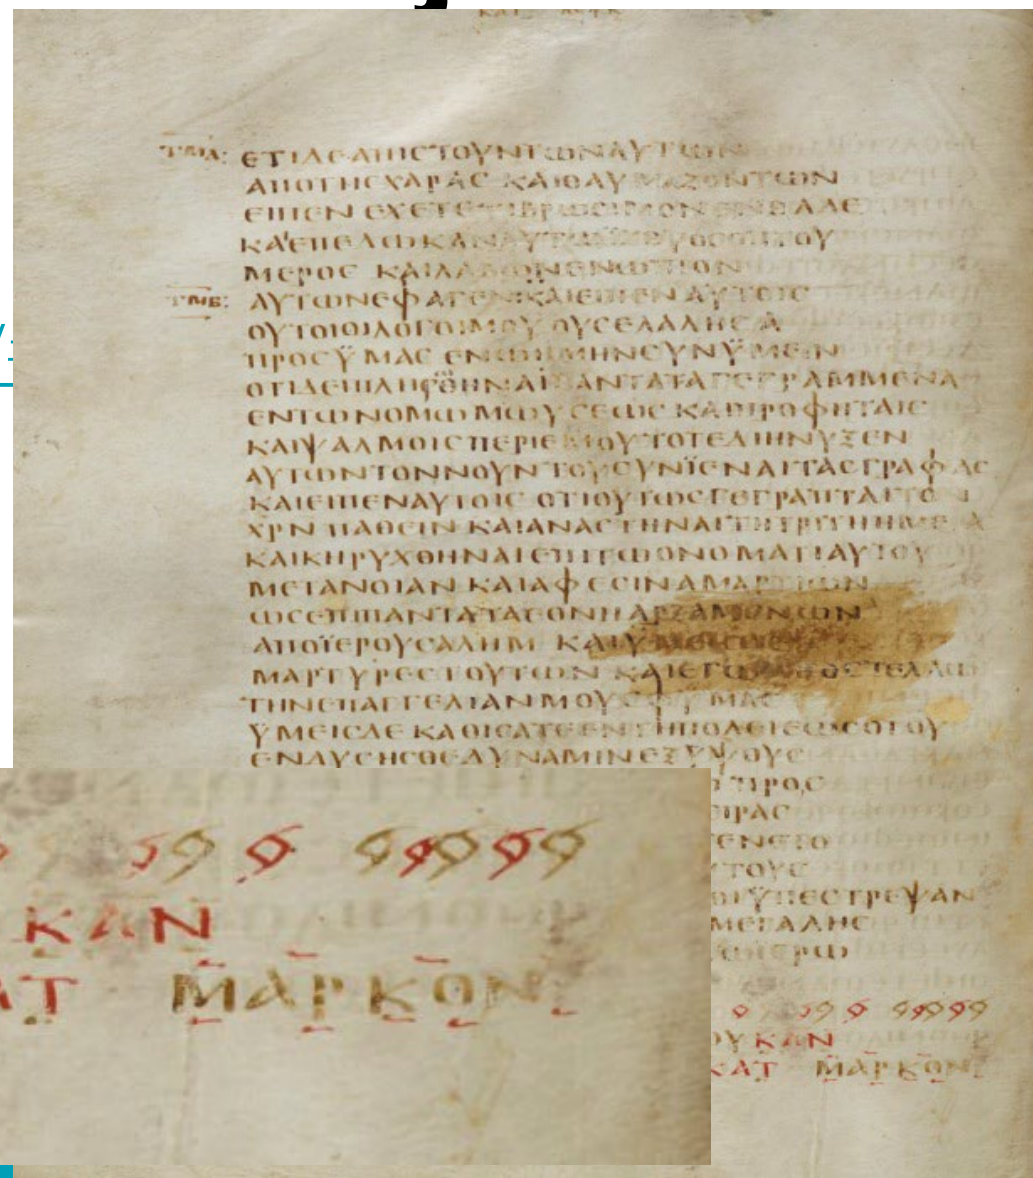 ΚΑΤ ΛΟΥΚ
ΤΜΑ: ΕΤΙΔΕΑΠΙϹΤΟΥΝΤΩΝΑΥΤΩΝ
ΑΠΟΤΗϹΧΑΡΑϹ ΚΑΙΘΑΥΜΑΖΟΝΤΩΝ
ΕΙΠΕΝ ΕΧΕΤΕΤΙΒΡΩϹΙΜΟΝ ΕΝΘΑΔΕ
ΚΑΙΕΠΕΔΩΚΑΝΑΥΤΩΪΧΘΥΟϹΟΠΤΟΥ
ΜΕΡΟϹ ΚΑΙΛΑΒΩΝΕΝΩΠΙΟΝ
ΤΜΒ: ΑΥΤΩΝΕΦΑΓΕΝ ΚΑΙΕΙΠΕΝ ΑΥΤΟΙϹ
ΟΥΤΟΙΟΙΛΟΓΟΙΜΟΥ ΟΥϹΕΛΑΛΗϹΑ
ΠΡΟϹΫΜΑϹ ΕΝΩΗΜΗΝϹΥΝΫΜΕΙΝ
ΟΤΙΔΕΙΠΛΗΡΩΘΗΝΑΙΠΑΝΤΑΤΑΓΕΓΡΑΜΜΕΝΑ
ΕΝΤΩΝΟΜΩΜΩΥϹΕΩϹ ΚΑΙΠΡΟΦΗΤΑΙϹ
ΚΑΙΨΑΛΜΟΙϹΠΕΡΙΕΜΟΥ ΤΟΤΕΔΙΗΝΥΞΕΝ
ΑΥΤΩΝΤΟΝΝΟΥΝΤΟΥϹΥΝΪΕΝΑΙΤΑϹΓΡΑΦΑϹ
ΚΑΙΕΙΠΕΝΑΥΤΟΙϹ ΟΤΙΟΥΤΩϹΓΕΓΡΑΠΤΑΙΤΟΝ
ΧΡΝ ΠΑΘΕΙΝ ΚΑΙΑΝΑϹΤΗΝΑΙΤΗΤΡΙΤΗΗΜΕΡΑ
ΚΑΙΚΗΡΥΧΘΗΝΑΙΕΠΙΤΩΟΝΟΜΑΤΙΑΥΤΟΥ
ΜΕΤΑΝΟΙΑΝ ΚΑΙΑΦΕϹΙΝΑΜΑΡΤΙΩΝ
ΩϹΕΠΙΠΑΝΤΑΤΑΕΘΝΗ ΑΡΞΑΜΕΝΩΝ
ΑΠΟΪΕΡΟΥϹΑΛΗΜ ΚΑΙΫΜΕΙϹΔΕ
ΜΑΡΤΥΡΕϹΤΟΥΤΩΝ ΚΑΙΕΓΩΑΠΟϹΤΕΛΛΩ
ΤΗΝΕΠΑΓΓΕΛΙΑΝΜΟΥΕΦΫΜΑϹ
ΫΜΕΙϹΔΕ ΚΑΘΙϹΑΤΕΕΝΤΗΠΟΛΕΙΕΩϹΟΤΟΥ
ΕΝΔΥϹΗϹΘΕΔΥΝΑΜΙΝΕΞΫΨΟΥϹ
ΠΡΟϹ
ΕΙΡΑϹ
ΓΕΝΕΤΟ
ΥΤΟΥϹ
ΟΙΫΠΕϹΤΡΕΨΑΝ
ΜΕΓΑΛΗϹ
ΩΪΕΡΩ
ΟΥΚΑΝ
ΚΑΤ ΜΑΡΚΟΝ
ΚΑΝ
ΑΤ ΜΑΡΚΟΝ